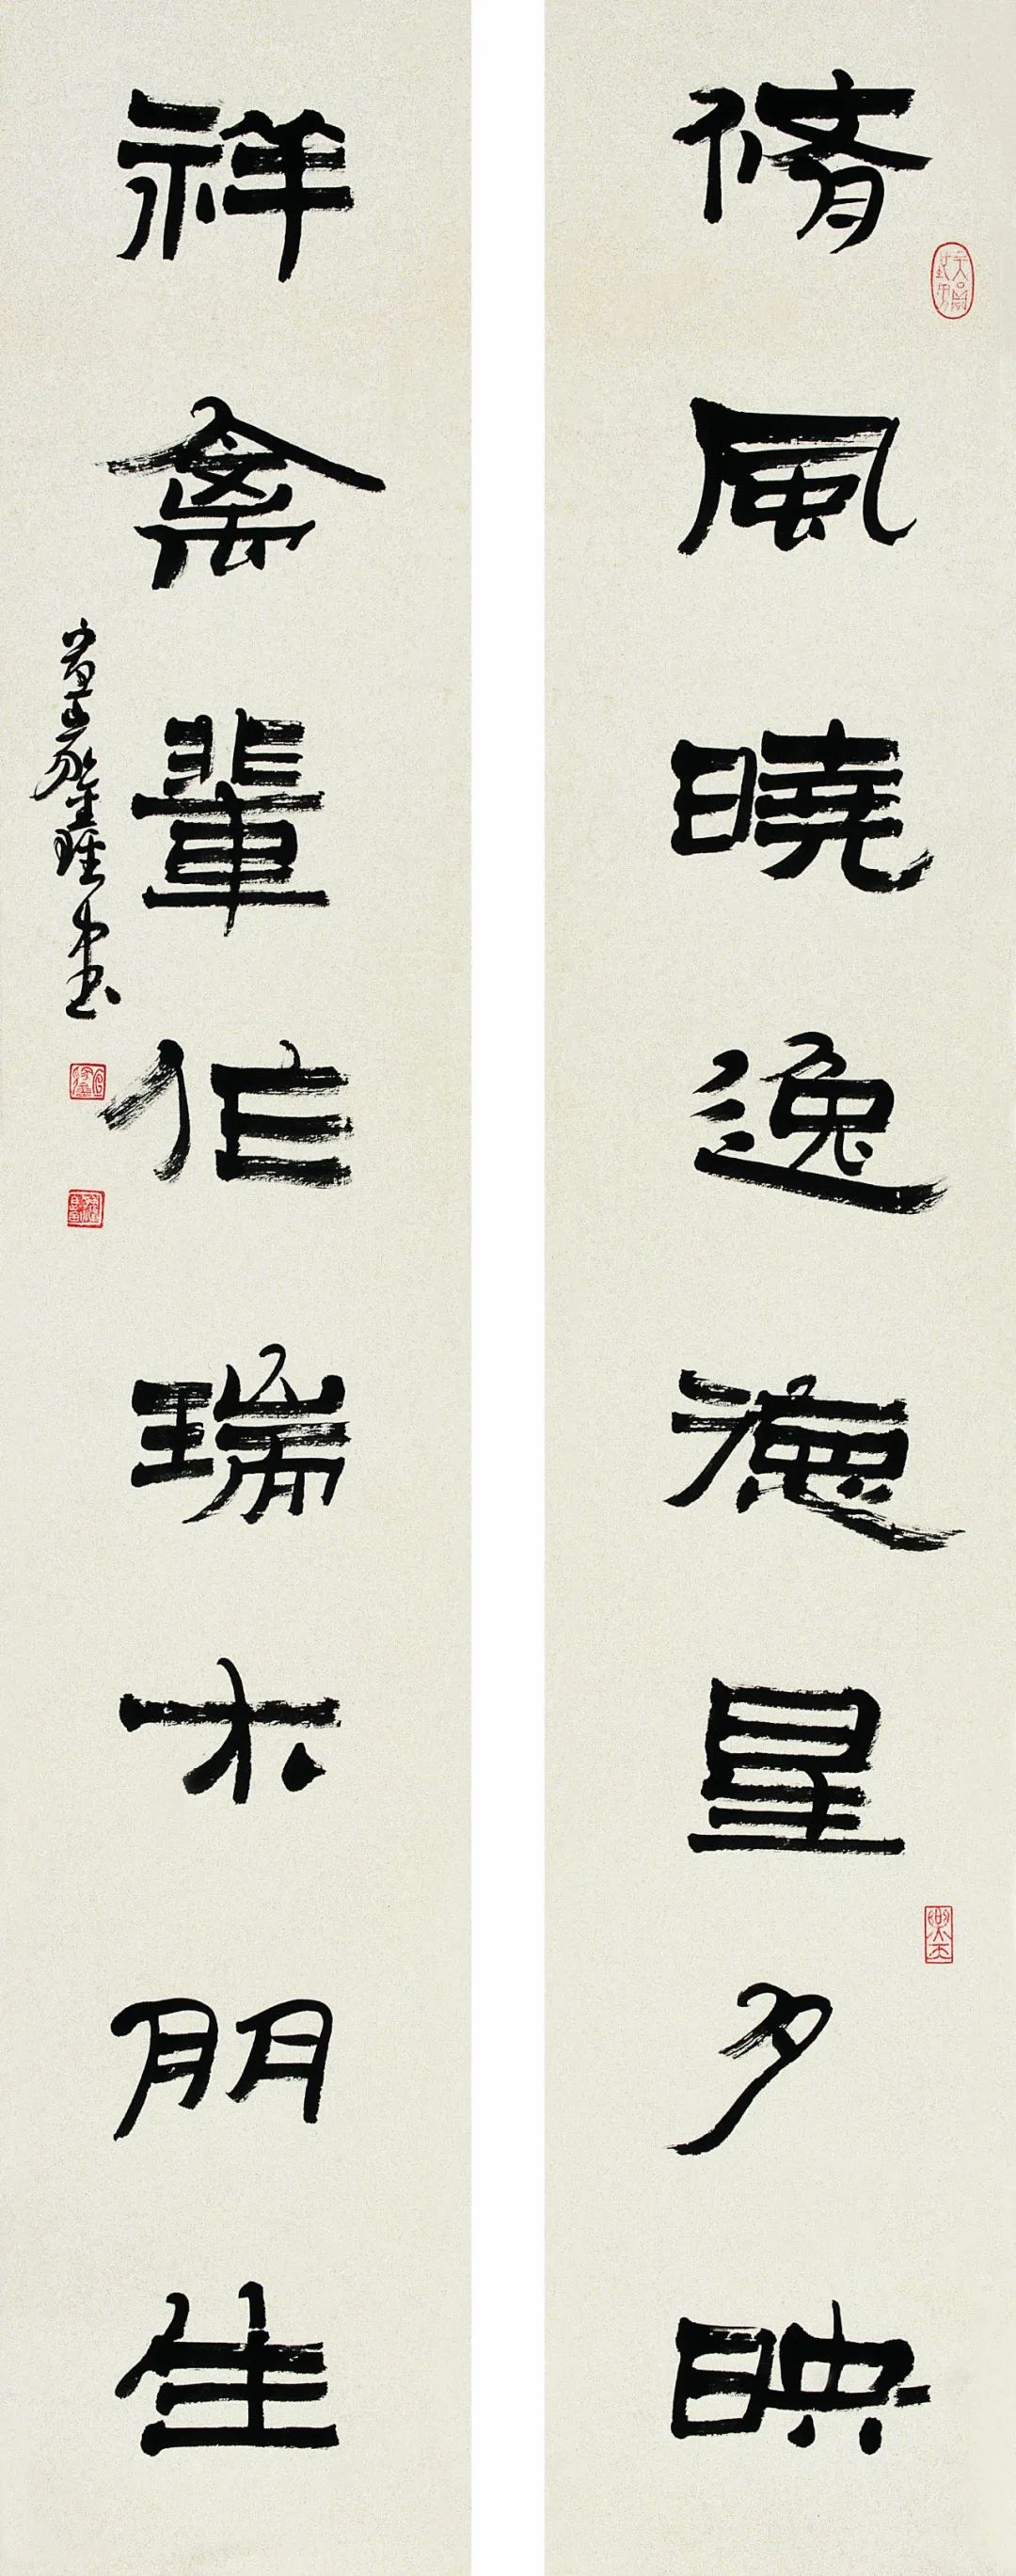 脩風曉逸德星夕映
祥禽輩作瑞木朋生